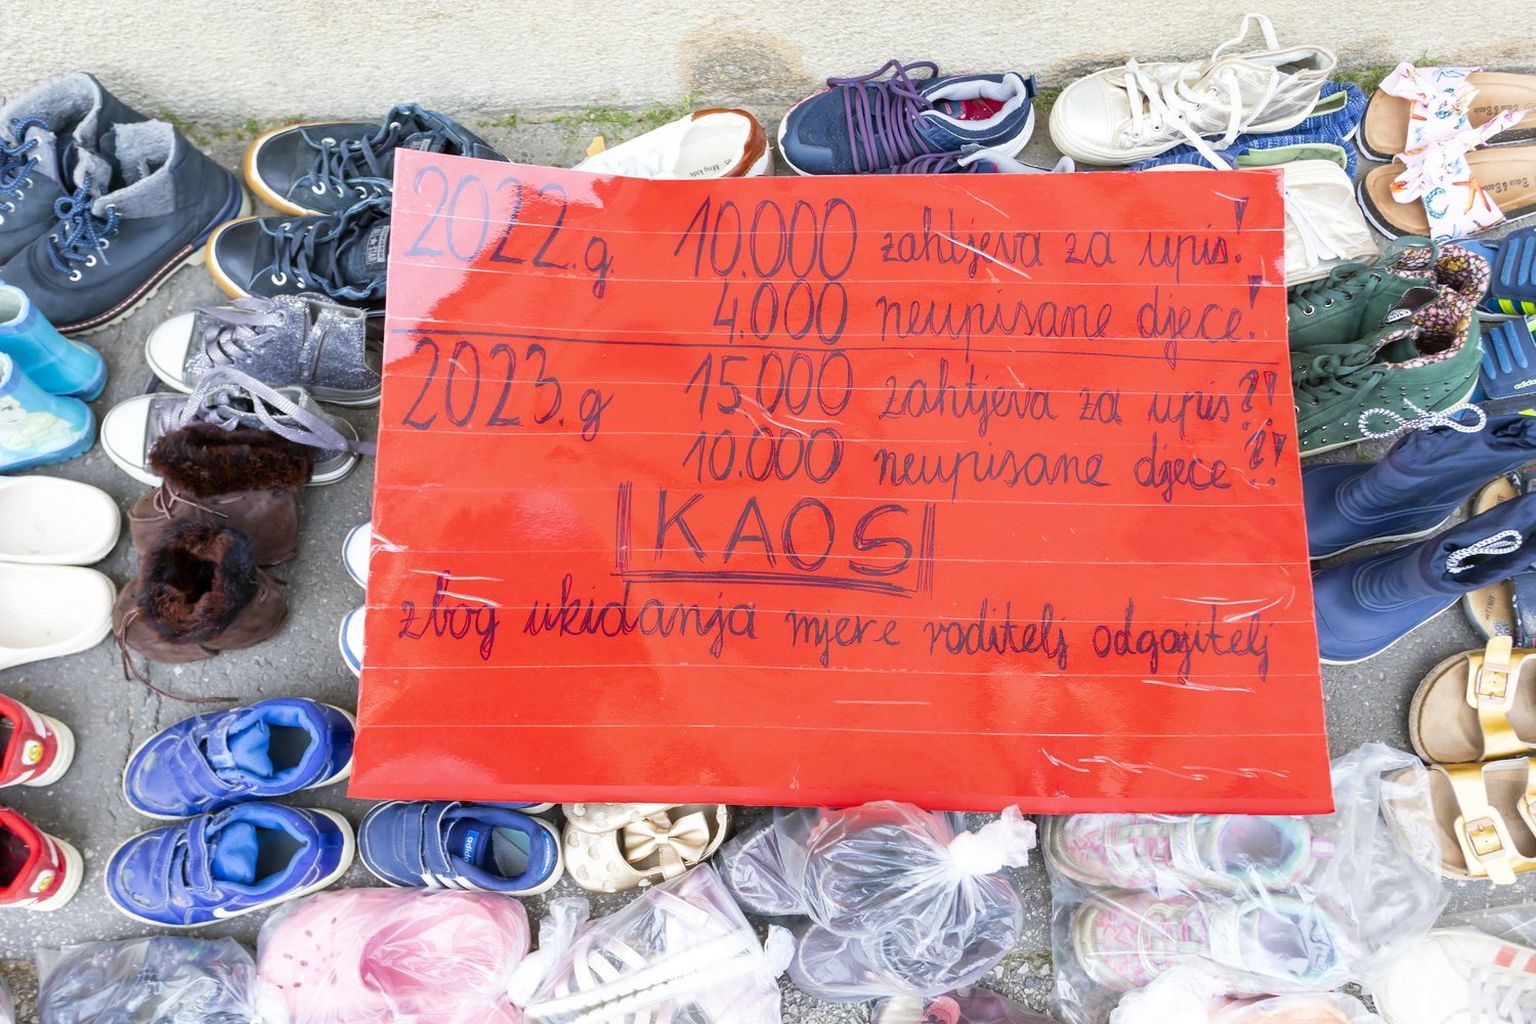 2022.g. 10.000 zahtjeva za upis!
4.000 neupisane djece!
2023.g 15.000 zahtjeva za upis?!
10.000 neupisane djece?!
KAOS
zbog ukidanja mjere roditelj odgojitelj
adidas